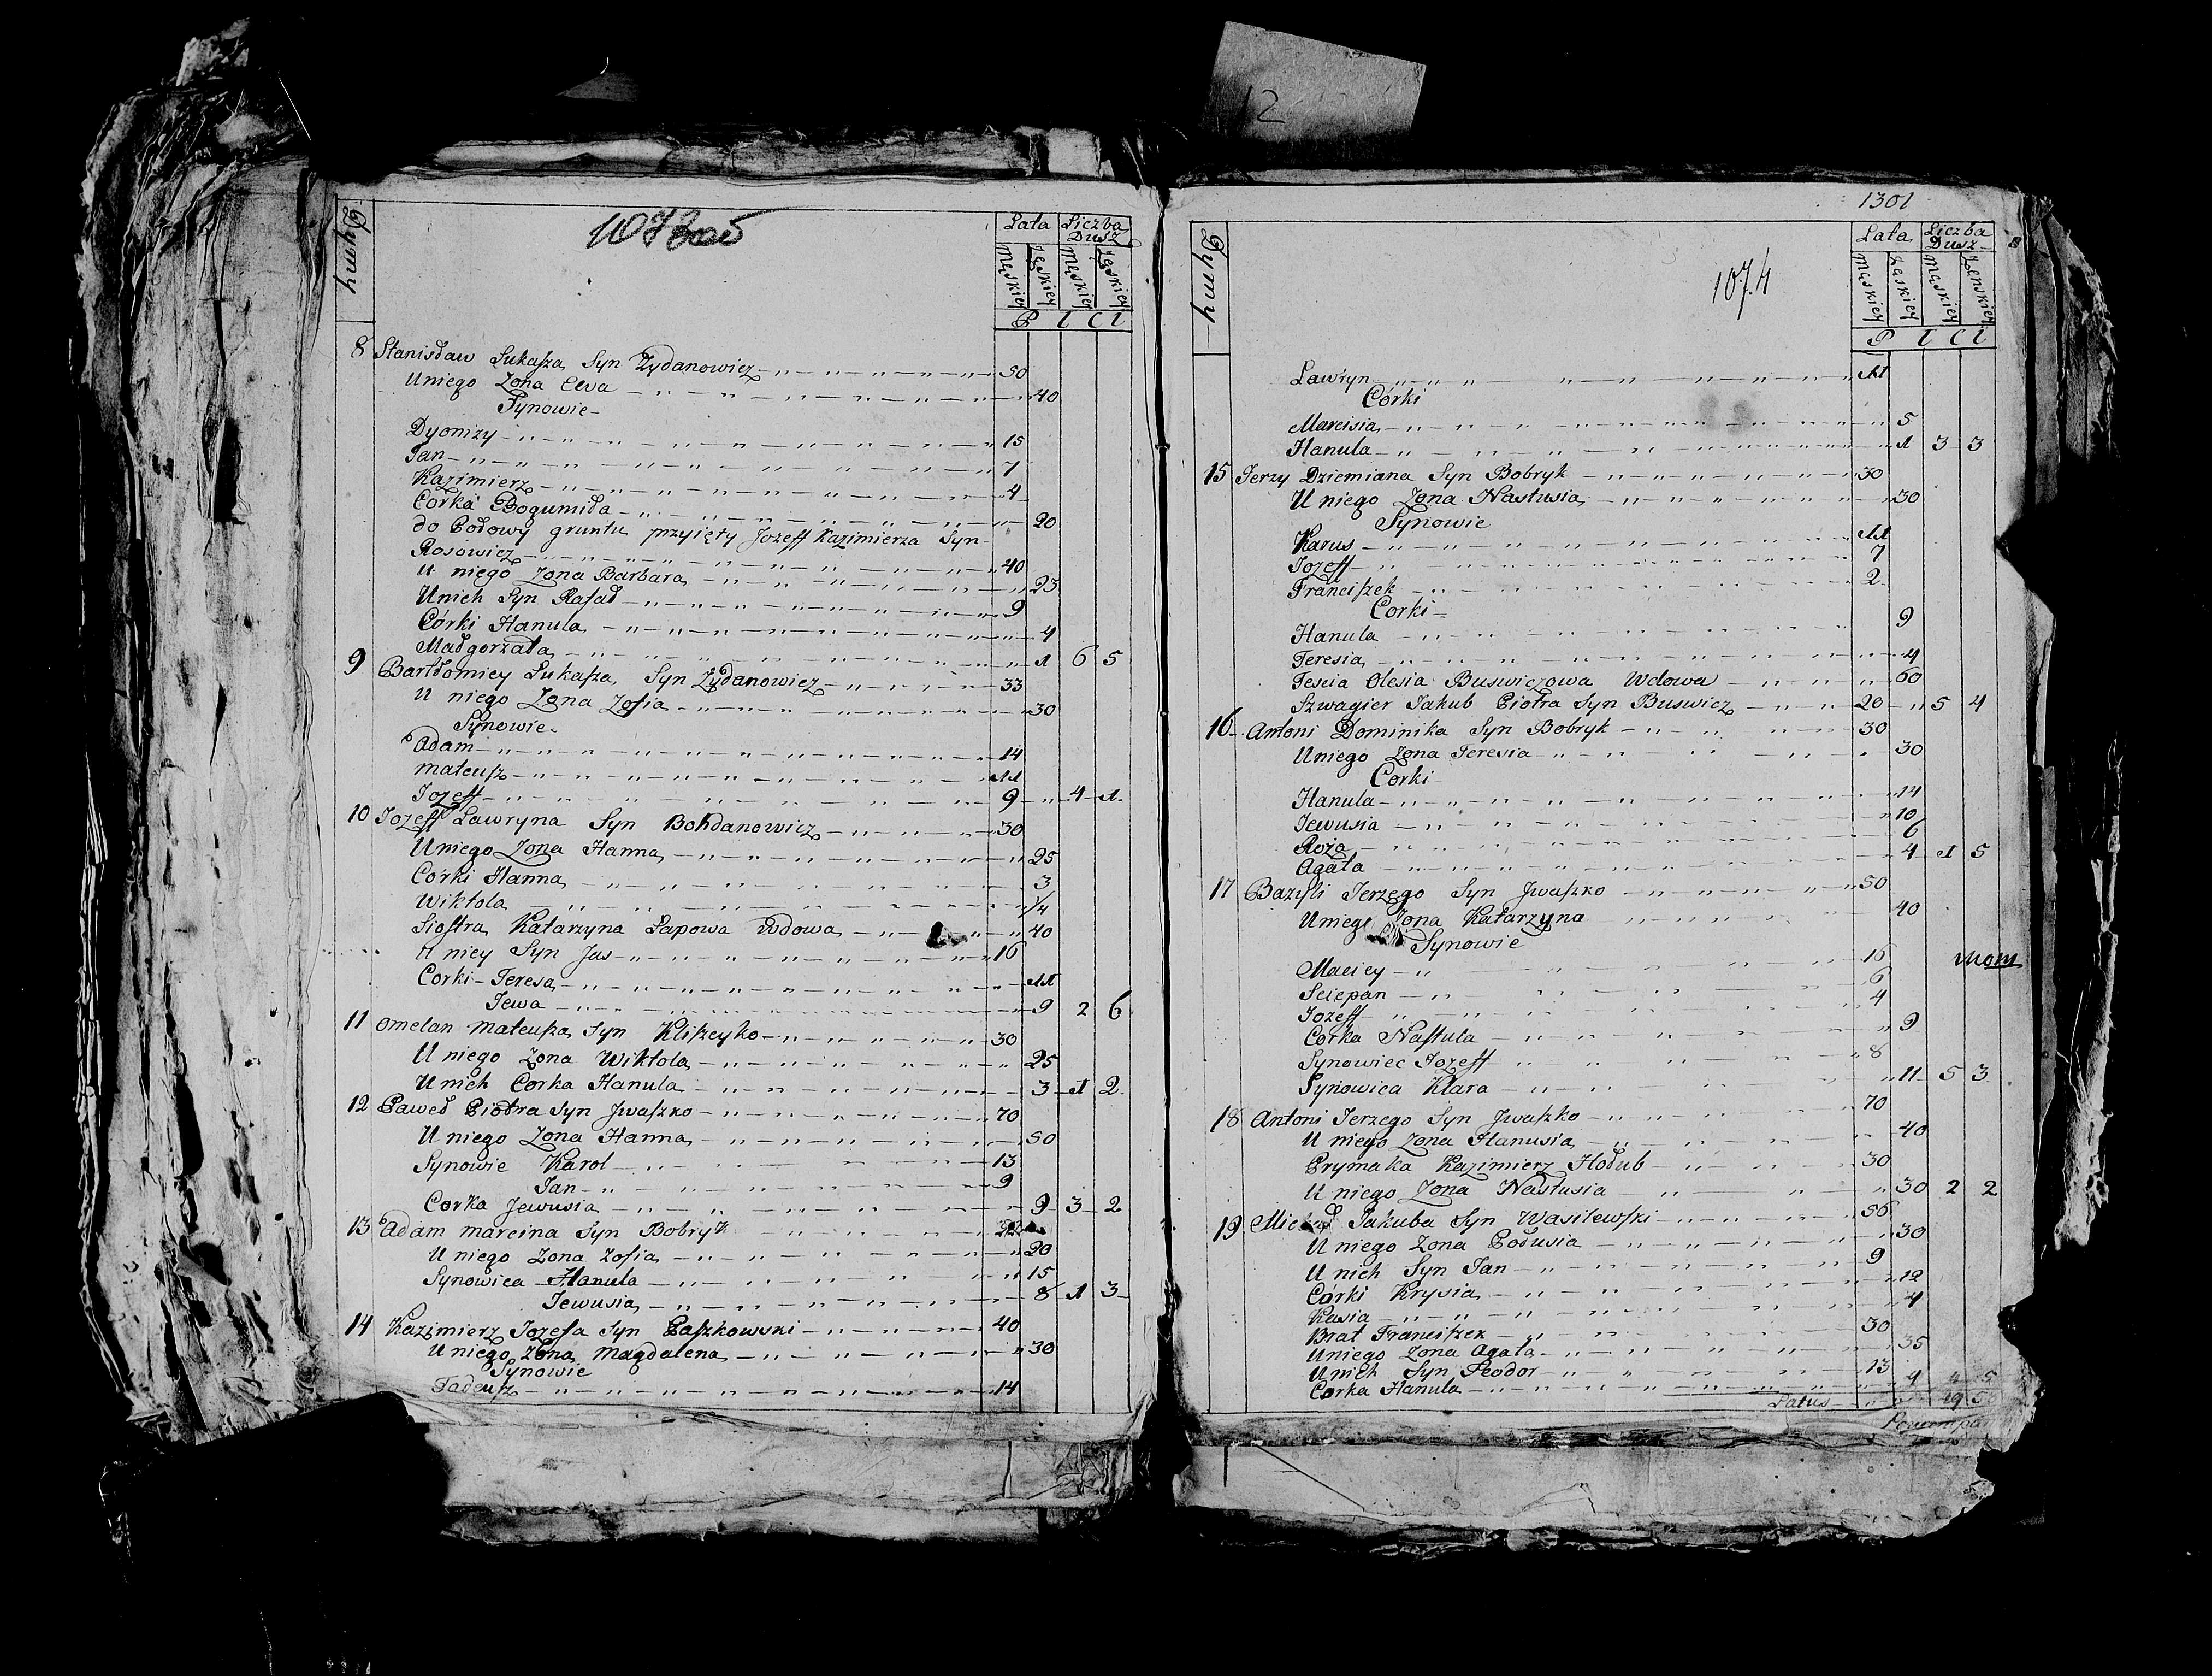 12
Dymy
Lata Liczba Dusz
Męskiey Żeńskiey Męskiey Żeńskiey
P l C l
8 Stanisław Łukasza Syn Żydanowicz 50
U niego Żona Ewa 40
Synowie
Dyonizy 15
Jan 7
Kazimierz 4
Córka Bogumiła 20
do Połowy gruntu przyięty Jozeff Kazimierza Syn
Rosowicz 40
U niego Żona Barbara 23
U nich Syn Rafał 9
Córki Hanula 4
Małgorzata 1 6 5
9 Bartłomiey Łukasza Syn Żydanowicz 33
U niego Żona Zofia 30
Synowie
Adam 14
Mateusz 11
Jozeff 9 " 4 1
10 Jozeff Ławryna Syn Bohdanowicz 30
U niego Żona Hanna 25
Córki Hanna 3
Wiktola 1/4
Siostra Katarzyna Łapowa Wdowa 40
U niey Syn Jas 16
Corki Teresa 11
Jewa 9 2 6
11 Omelan Mateusza Syn Kliszeyko 30
U niego Żona Wiktola 25
U nich Corka Hanula 3 1 2
12 Paweł Piotra Syn Jwaszko 70
U niego Żona Hanna 50
Synowie Karol 13
Jan 9
Corka Jewusia 9 3 2
13 Adam Marcina Syn Bobryk
U niego Żona Zofia 20
Synowica Hanula 15
Jewusia 8 1 3
14 Kazimierz Jozefa Syn Paszkowski 40
U niego Żona Magdalena 30
Synowie
Tadeusz 14
1301
1074
Dymy
Lata Liczba Dusz
Męskiey Żeńskiey Męskiey Żeńskiey
P l C l
Ławryn 11
Córki
Marcisia 5
Hanula 1 3 3
15 Jerzy Dziemiana Syn Bobryk 30
U niego Żona Nastusia 30
Synowie
Karus 11
Jozeff 7
Franciszek 2
Corki
Hanula 9
Teresia 4
Teścia Olesia Buswiczowa Wdowa 60
Szwagier Jakub Piotra Syn Buswicz 20 " 5 4
16 Antoni Dominika Syn Bobryk 30
U niego Żona Teresia 30
Corki
Hanula 14
Jewusia 10
Roża 6
Agata 4 1 5
17 Bazyli Jerzego Syn Jwaszko 50
U niego Żona Katarzyna 40
Synowie
Maciey 16
Sciepan 6
Jozeff 4
Corka Nastula 9
Synowiec Jozeff 8
Synowica Klara 11 5 3
18 Antoni Jerzego Syn Jwaszko 70
U niego Żona Hanusia 40
Prymaka Kazimierz Hołub 30
U niego Żona Nastusia 30 2 2
19 Michał Jakuba Syn Wasilewski 56
U niego Żona Połusia 30
U nich Syn Jan 9
Córki Krysia 12
Kasia 4
Brat Franciszek 30
U niego Żona Agata 35
U nich Syn Teodor 13
Corka Hanula 9 4 5
Latus